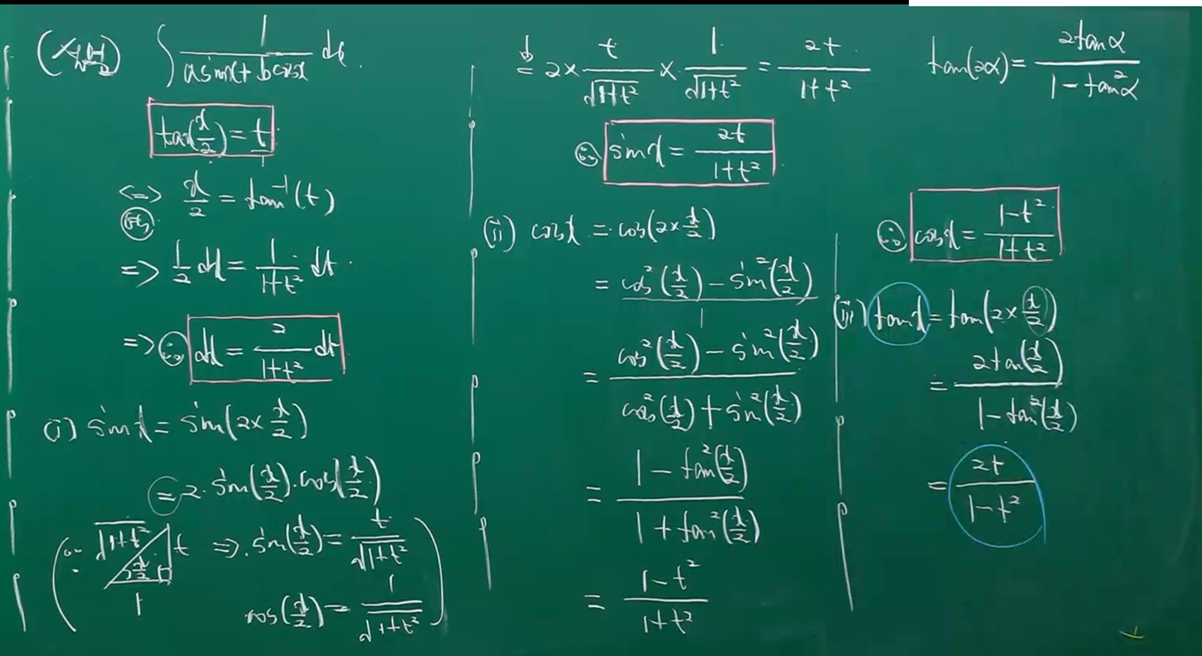 ∫ 1/(a sin x + b cos x) dx.
tan(x/2) = t
<=> x/2 = tan⁻¹(t)
=> 1/2 dx = 1/(1+t²) dt.
=> ∴ dx = 2/(1+t²) dt
(i) sin x = sin(2 × x/2)
= 2·sin(x/2)·cos(x/2)
(∵ √(1+t²) t x/2 1 => sin(x/2) = t/√(1+t²)
cos(x/2) = 1/√(1+t²))
= 2 × t/√(1+t²) × 1/√(1+t²) = 2t/(1+t²)
∴ sin x = 2t/(1+t²)
(ii) cos x = cos(2 × x/2)
= (cos²(x/2) − sin²(x/2))/1
= (cos²(x/2) − sin²(x/2))/(cos²(x/2) + sin²(x/2))
= (1 − tan²(x/2))/(1 + tan²(x/2))
= (1−t²)/(1+t²)
tan(2α) = 2tanα/(1 − tan²α)
∴ cos x = (1−t²)/(1+t²)
(iii) tan x = tan(2 × x/2)
= 2tan(x/2)/(1 − tan²(x/2))
= 2t/(1−t²)